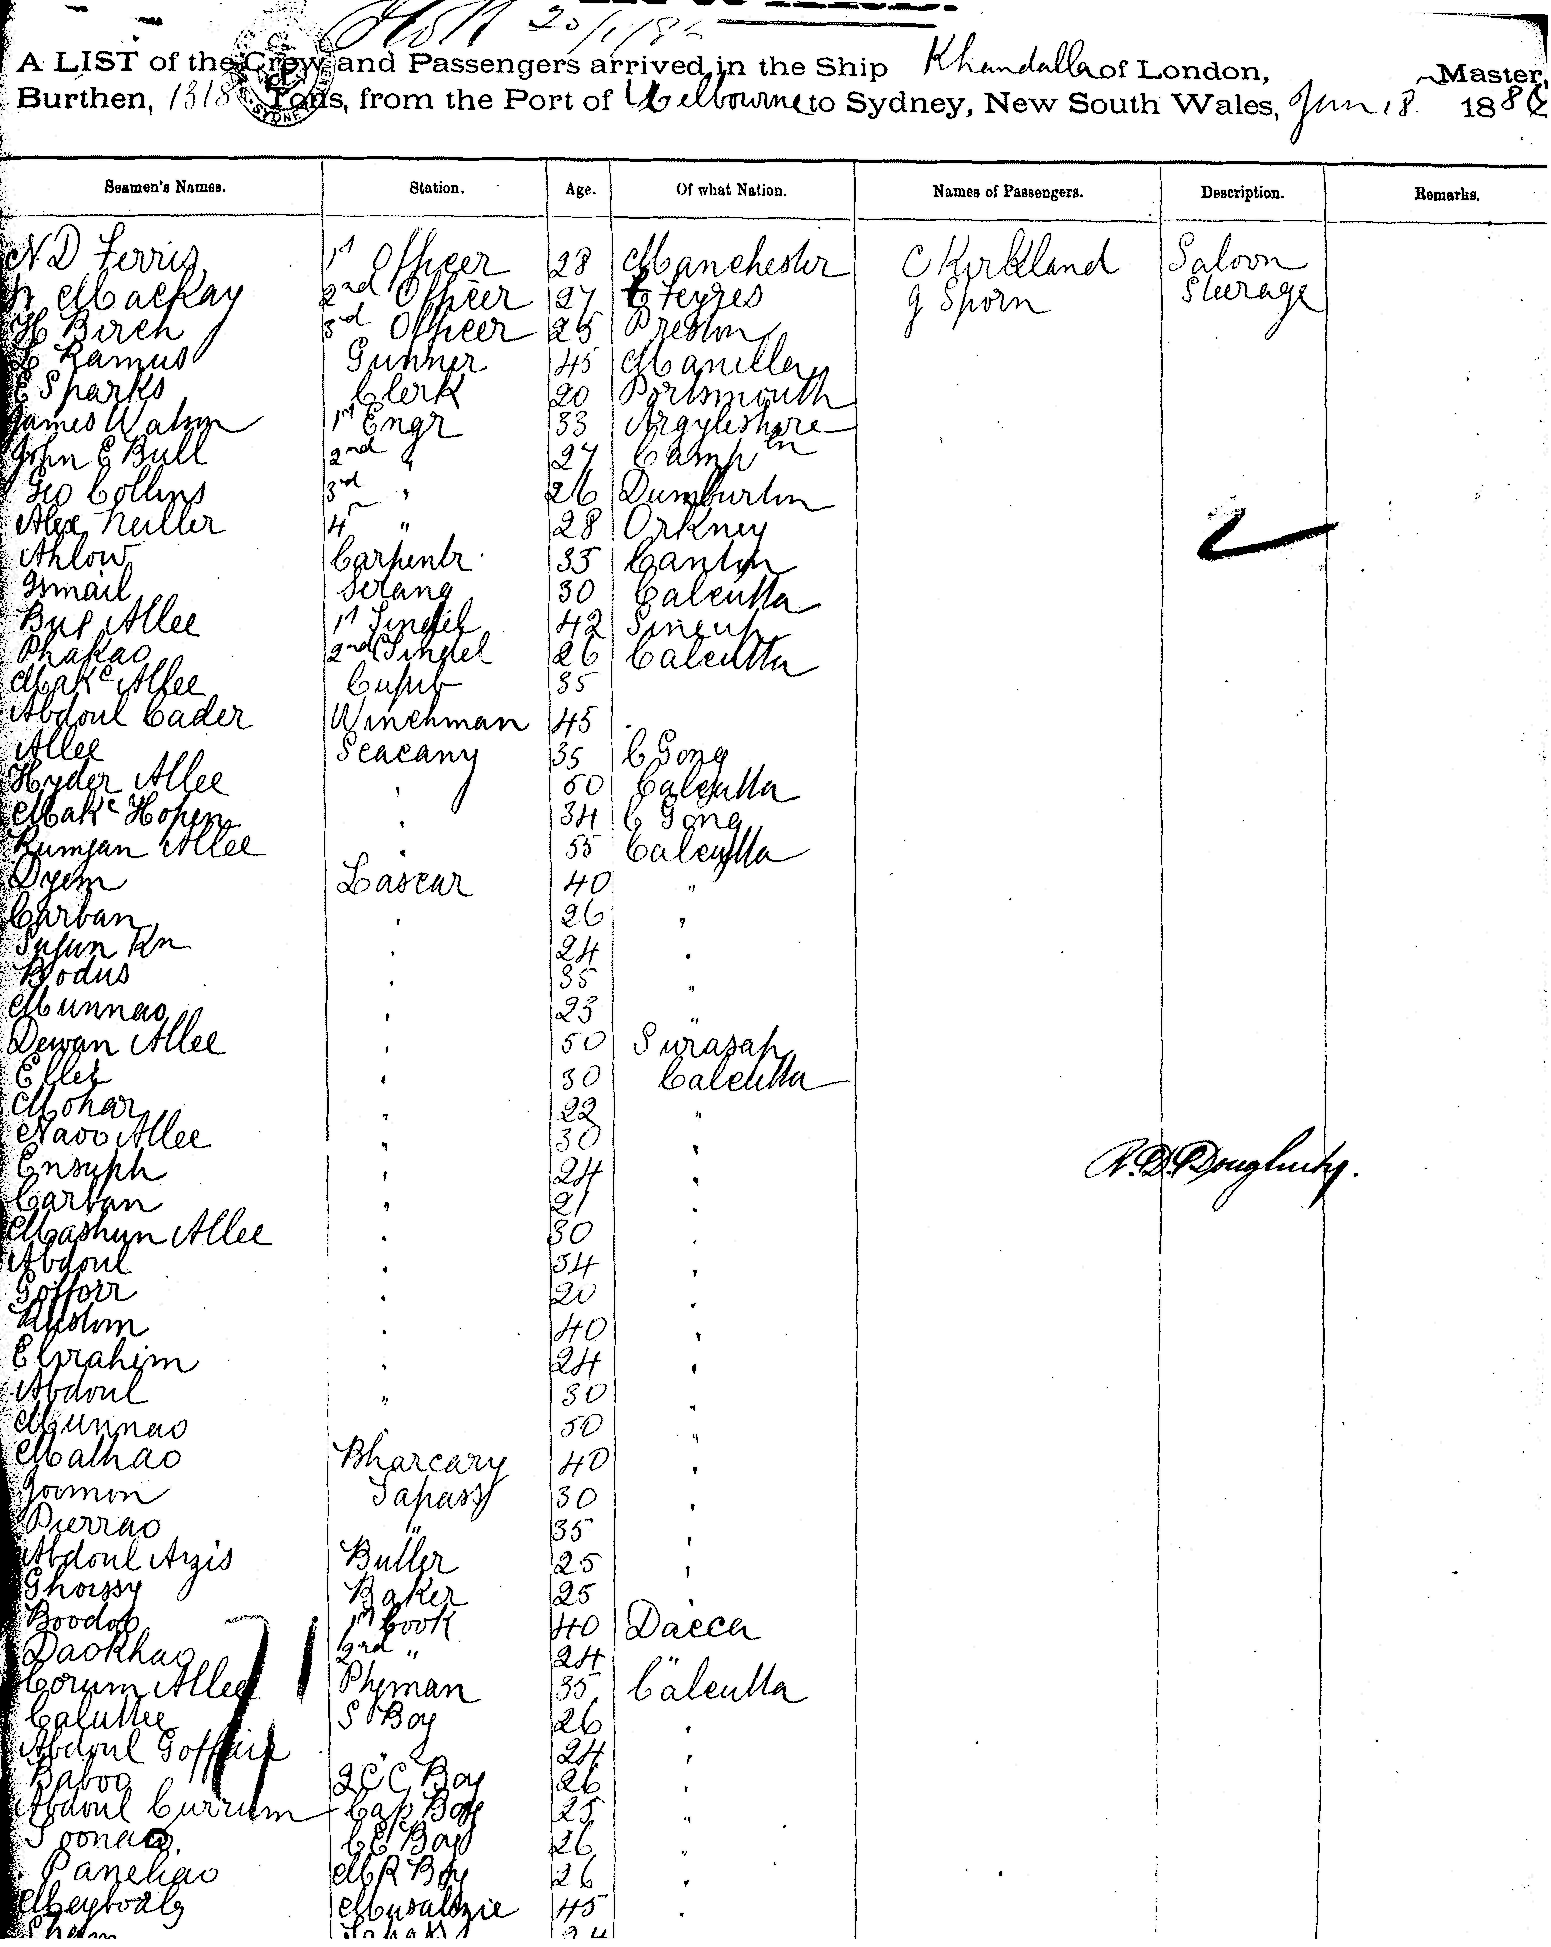 20/1/86
A LIST of the Crew and Passengers arrived in the Ship Khandalla of London, Master,
Burthen, 1318 Tons, from the Port of Melbourne to Sydney, New South Wales, Jan 18 188
Seamen's Names. Station. Age. Of what Nation. Names of Passengers. Description. Remarks.
N D Ferris 1st Officer 28 Manchester C Kirkland Saloon
Mackay 2nd Officer 27 J Sporn Steerage
H Birch 3rd Officer 25 Preston
Ramus Gunner 45 Manilla
E Sparks Clerk 20 Portsmouth
James Watson 1st Engr 33 Argyleshire
John E Bull 2nd " 27 Camp
Geo Collins 3rd " 26 Dumburton
Alex 4 " 28 Orkney
Ahlow Carpentr 35 Canton
Ismail Serang 30 Calcutta
Allee 1st Tindel 42
Phakao 2nd Tindel 26 Calcutta
Allee 35
Abdoul Cader Winchman 45
Allee Seacany 35 C Gong
Hyder Allee " 50 Calcutta
Hopen " 34 C Gong
Rumjan Allee " 55 Calcutta
Dyem Lascar 40 "
Carban " 26 "
24 "
Bodus " 35 "
Munnao " 23 "
Dewan Allee " 50
" 30 Calcutta
Mohar " 22 "
Navo Allee " 30 "
Ensuph " 24 "
Carban " 21 "
Mashun Allee " 30 "
Abdoul " 34 "
Gofforr " 20 "
Rustom " 40 "
Ebrahim " 24 "
Abdoul " 30 "
Munnao 50 "
Malhao Bharcary 40 "
Joomon Tapass 30 "
Pierrao " 35 "
Abdoul Azis Butler 25 "
Baker 25 "
1st Cook 40 Dacca
Daokhao 2nd " 24 "
Corum Allee 35 Calcutta
S Boy 26 "
Abdoul " 24 "
Baboo 2 C C Boy 26 "
Abdoul Currum Cap Boy 25 "
C E Boy 26 "
Panchao M R Boy 26 "
45 "
24
R. D. Dougherty.